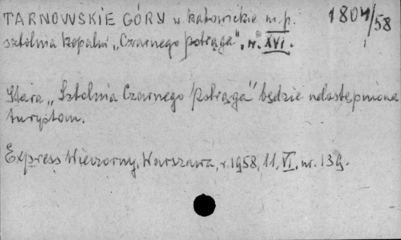 TARNOWSKIE GÓRY w. katowickie m.p. 1804/58
sztolnia kopalni „Czarnego pstrąga", w. XVI.
Stara „Sztolnia Czarnego Pstrąga" będzie udostępniona
turystom.
Express Wieczorny, Warszawa, r. 1958, 11. VI. nr. 139.